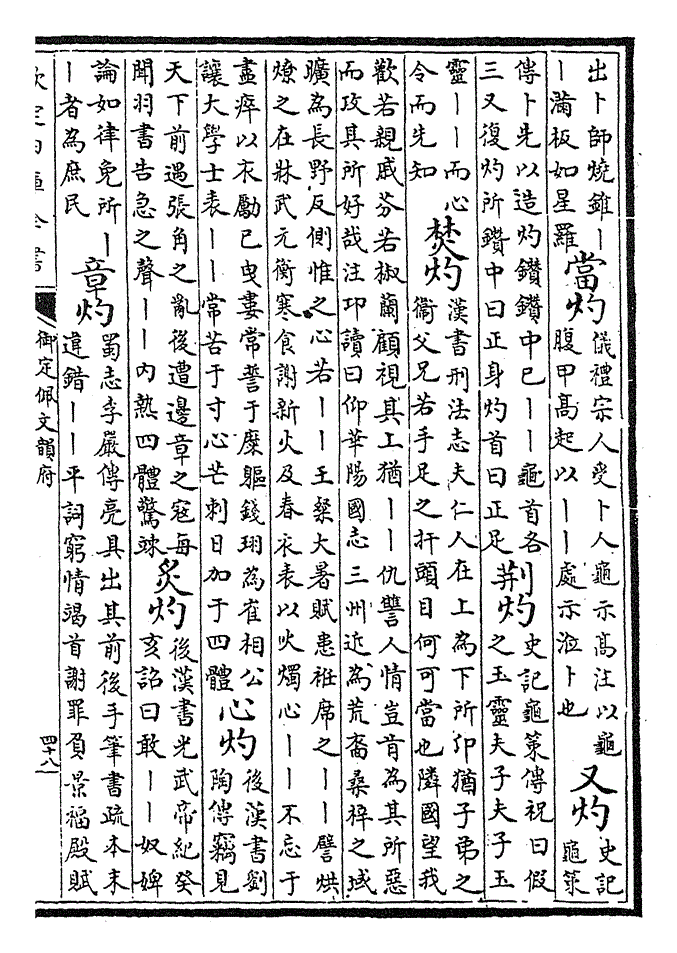 出卜師燒錐｜
｜滿板如星羅
當灼
儀禮宗人受卜人龜示髙注以龜
腹甲髙起以｜｜處示涖卜也
又灼
史記
龜策
傳卜先以造灼鑽鑽中已｜｜龜首各
三又復灼所鑽中曰正身灼首曰正足
荆灼
史記龜策傳祝曰假
之玉靈夫子夫子玉
靈｜｜而心
令而先知
焚灼
漢書刑法志夫仁人在上為下所仰猶子弟之
衞父兄若手足之扞頭目何可當也隣國望我
歡若親戚芬若椒蘭顧視其上猶｜｜仇讐人情豈肯為其所惡
而攻其所好哉注卭讀曰仰華陽國志三州近為荒裔桑梓之域
曠為長野反側惟之心若｜｜王粲大暑賦患袵席之｜｜譬烘
燎之在牀武元衡寒食謝新火及春衣表以火燭心｜｜不忘于
盡瘁以衣勵已曳婁常誓于糜軀錢珝為崔相公
讓大學士表｜｜常苦于寸心芒刺日加于四體
心灼
後漢書劉
陶傳竊見
天下前遇張角之亂後遭邊章之寇每
聞羽書告急之聲｜｜内熱四體驚竦
炙灼
後漢書光武帝紀癸
亥詔曰敢｜｜奴婢
論如律免所｜
｜者為庶民
章灼
蜀志李嚴傳亮具出其前後手筆書疏本末
違錯｜｜平詞窮情竭首謝罪負景福殿賦
欽定四庫全書
御定佩文韻府
四十八